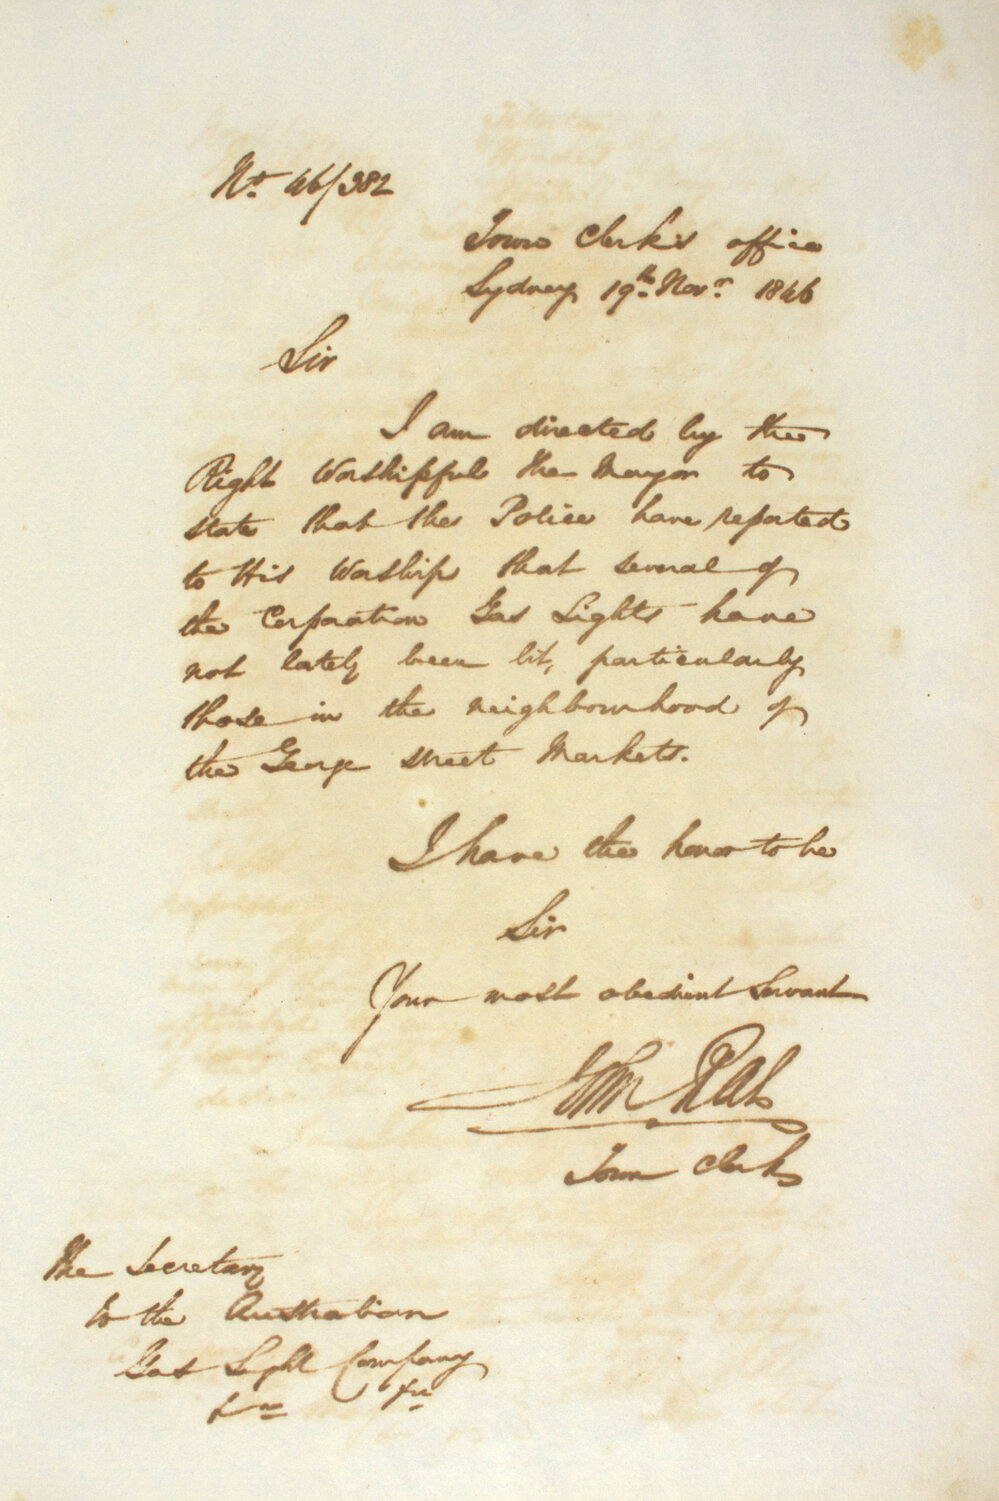 No. 46/382
Town Clerk's office
Sydney 19th. Novr. 1846
Sir
I am directed by the
Right Worshipful the Mayor to
state that the Police have reported
to His Worship that several of
the Corporation Gas Lights have
not lately been lit, particularly
those in the neighbourhood of
the George street Markets.
I have the honor to be
Sir
Your most obedient Servant
John Rae
Town Clerk
The Secretary
to the Australian
Gas Light Company
&c &c